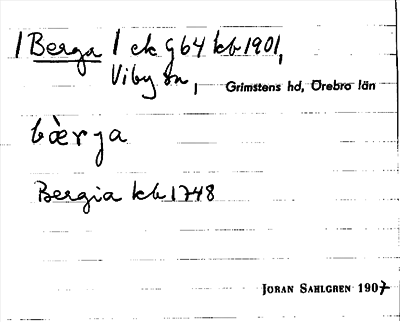 / Berga / ek G64 kb 1901,
Viby sn, Grimstens hd, Örebro län
bæ̀rja
Bergia kb 1748
JORAN SAHLGREN 1907